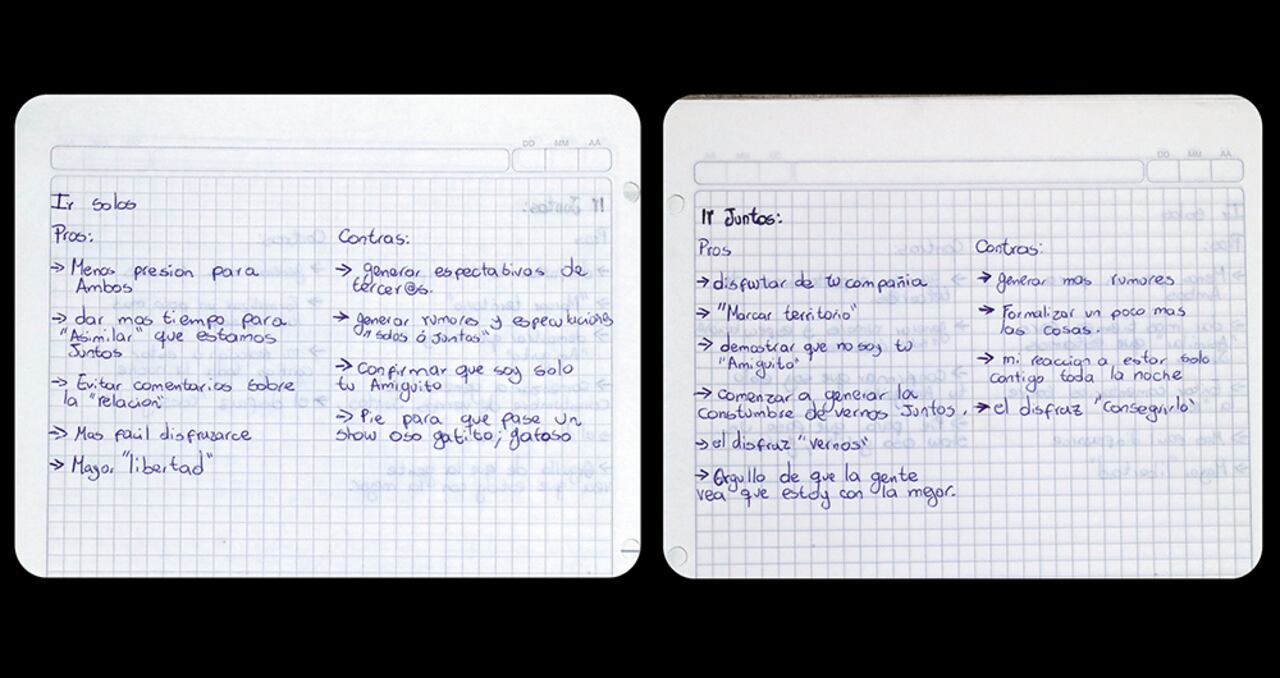 Ir solos
Pros:
→ Menos presion para
Ambos
→ dar mas tiempo para
"Asimilar" que estamos
Juntos
→ Evitar comentarios sobre
la "relacion"
→ Mas facil disfrazarce
→ Mayor "libertad"
Contras:
→ generar espectativas de
tercer@s.
→ generar rumores y especulaciones
"solos ó Juntos"
→ Confirmar que soy solo
tu Amiguito
→ Pie para que pase un
show oso gatito; gatoso
Ir Juntos:
Pros
→ disfrutar de tu compañia
→ "Marcar territorio"
→ demostrar que no soy tu
"Amiguito"
→ comenzar a generar la
constumbre de vernos Juntos.
→ el disfraz "vernos"
→ Orgullo de que la gente
vea que estoy con la mejor.
Contras:
→ generar mas rumores
→ Formalizar un poco mas
las cosas.
→ mi reaccion a estar solo
contigo toda la noche
→ el disfraz "conseguirlo"
AA MM DD
AA MM DD